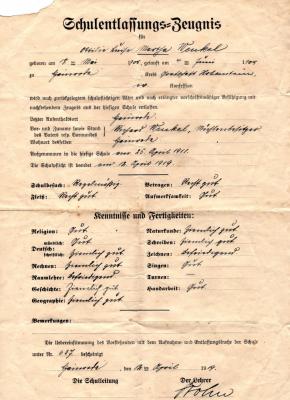 Schulentlassungs-Zeugnis
für
Martha Kunkel
geboren am 8ten Mai 1905, getauft am ten Juni 1905
zu Hainrode Kreis Grafschaft Hohenstein,
ev. Konfession
wird nach zurückgelegtem schulpflichtigen Alter und nach erlangter vorschriftsmäßiger Befähigung mit
nachstehendem Zeugnis aus der hiesigen Schule entlassen.
Letzter Aufenthaltsort Hainrode
Vor- und Zuname sowie Stand des Vaters ods Vormundes Kunkel,
Wohnort desselben Hainrode
Aufgenommen in die hiesige Schule am 25. April 1911.
Die Schulpflicht ist beendet am 12. April 1919.
Schulbesuch: Regelmäßig Betragen: Recht gut
Fleiß: Recht gut Aufmerksamkeit: Gut
Kenntnisse und Fertigkeiten:
Religion: Gut Naturkunde: Ziemlich gut
Deutsch: mündlich: Gut Schreiben: Ziemlich gut
schriftlich: Ziemlich gut Zeichnen: Befriedigend
Rechnen: Ziemlich gut Singen: Gut
Raumlehre: Befriedigend Turnen: —
Geschichte: Ziemlich gut Handarbeit: Gut
Geographie: Ziemlich gut
Bemerkungen:
Die Uebereinstimmung des Vorstehenden mit dem Aufnahme- und Entlassungsbuche der Schule
unter Nr. 057 bescheinigt
Hainrode, den 12. April 1919.
Die Schulleitung Der Lehrer